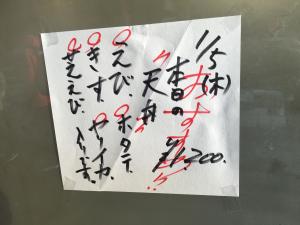 1/5(木)
おすすめ!!
本日の
天丼
¥1,200.
○えび、○ホタテ、
○きす、○ヤリイカ、
○甘えび、入ります。